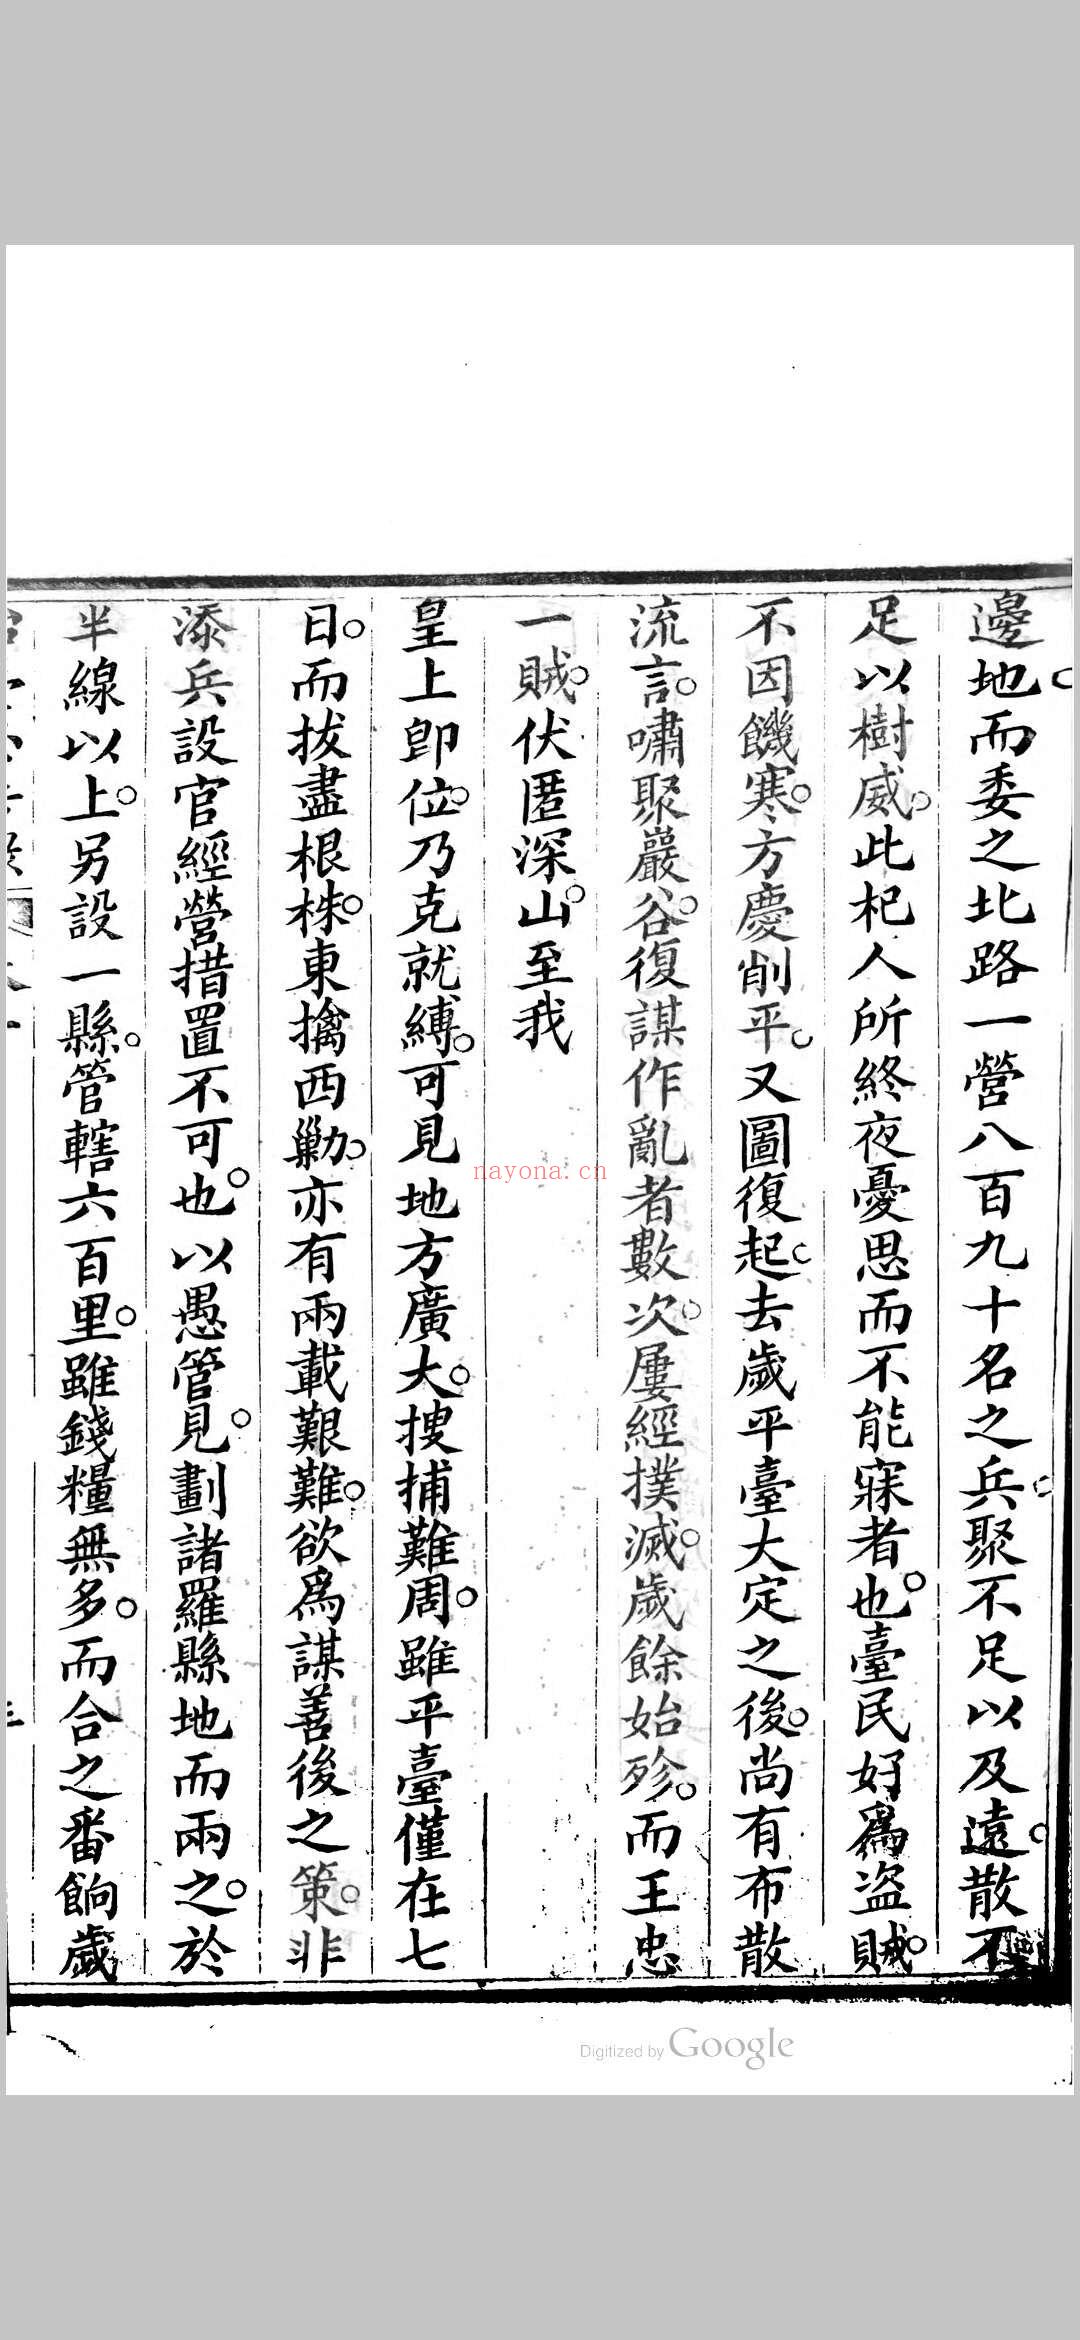 邊地。而委之北路一營八百九十名之兵。聚不足以及遠。散不
足以樹威。此杞人所終夜憂思而不能寐者也。臺民好爲盜賊。
不因饑寒。方慶削平。又圖復起。去歲平臺大定之後。尚有布散
流言。嘯聚巖谷。復謀作亂者數次。屢經撲滅。歲餘始殄。而王忠
一賊。伏匿深山。至我
皇上卽位。乃克就縛。可見地方廣大。搜捕難周。雖平臺僅在七
日。而拔盡根株。東擒西勦。亦有兩載艱難。欲爲謀善後之策。非
添兵設官經營措置不可也。以愚管見。劃諸羅縣地而兩之。於
半線以上。另設一縣。管轄六百里。雖錢糧無多。而合之番餉。歲
nayona.cn
Digitized by Google